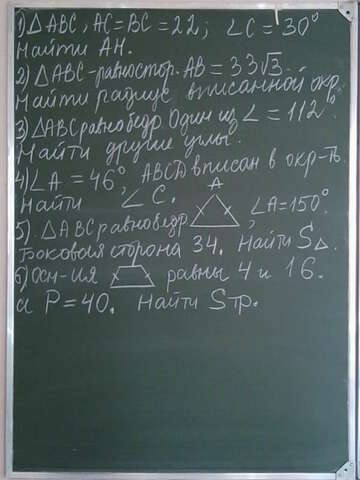 1) △ ABC, AC = BC = 22; ∠C = 30°
Найти AH.
2) △ ABC - равностор. AB = 33√3.
Найти радиус вписанной окр.
3) △ABC равнобедр. Один из ∠ = 112°.
Найти другие углы.
4) ∠A = 46°, ABCD вписан в окр-ть
Найти ∠C.
A
5) △ABC равнобедр, ∠A = 150°.
Боковая сторона 34. Найти S△.
6) Осн-ия равны 4 и 16.
а P = 40. Найти Sтр.